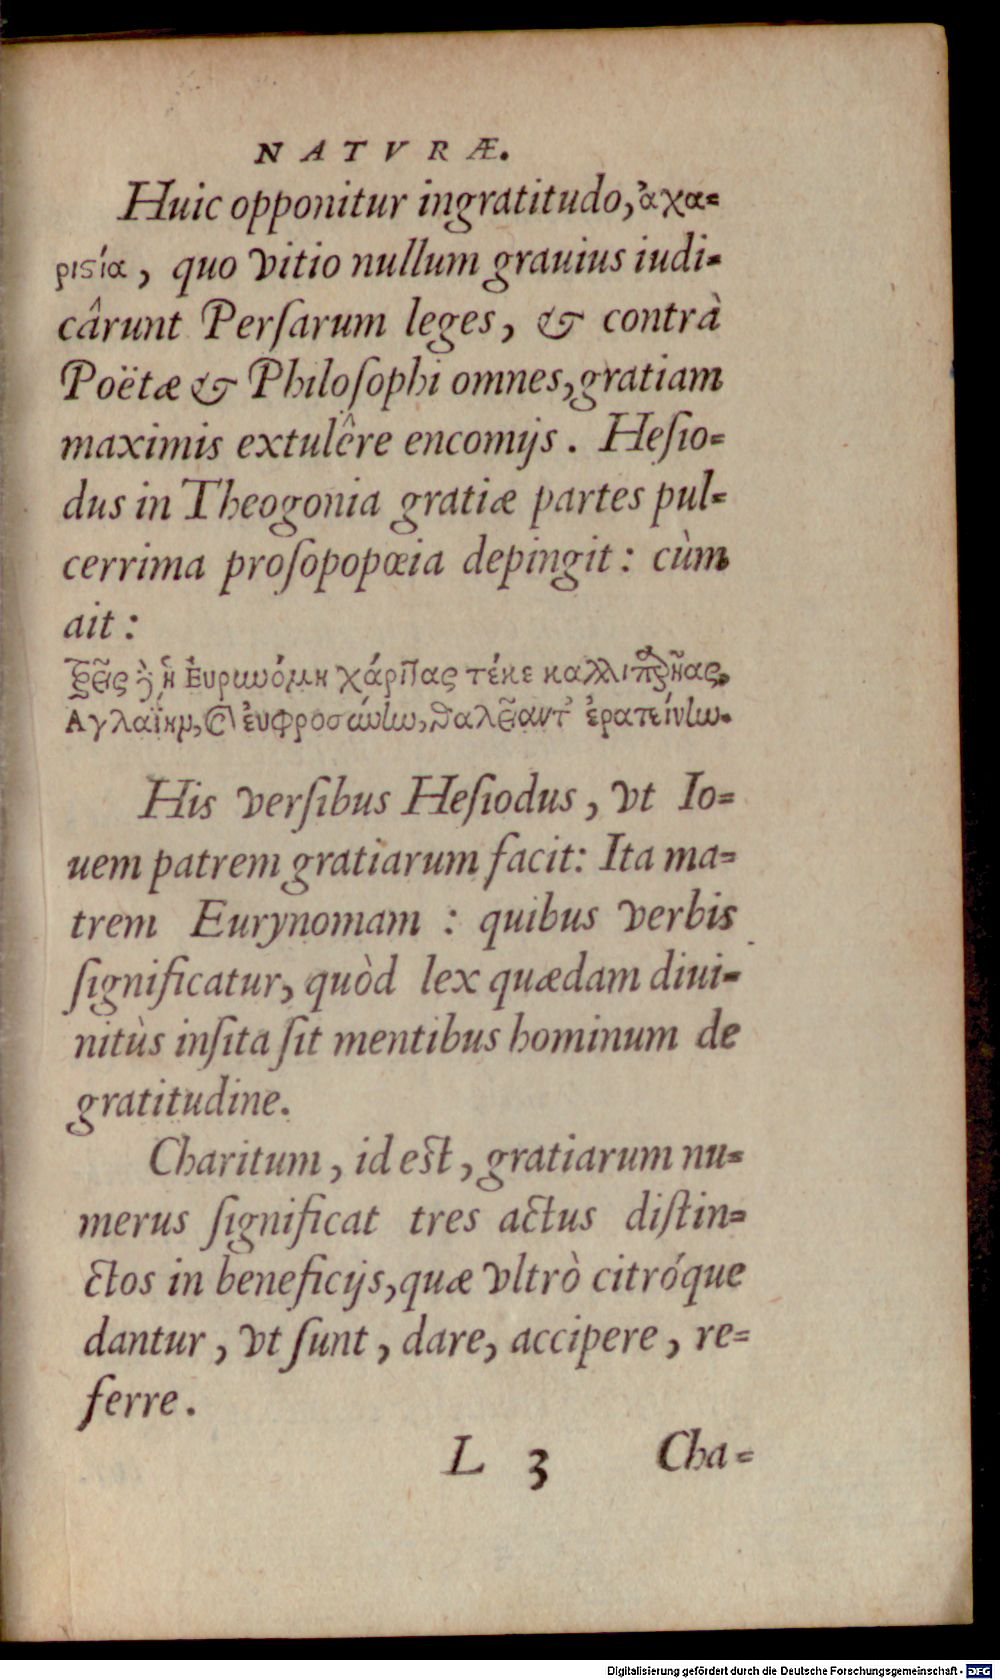 NATVRÆ.
Huic opponitur ingratitudo, ἀχα=
ριςία, quo vitio nullum grauius iudi=
cârunt Perſarum leges, & contrà
Poëtæ & Philoſophi omnes, gratiam
maximis extulêre encomijs. Heſio=
dus in Theogonia gratiæ partes pul=
cerrima proſopopœia depingit: cùm
ait:
τρεῖς δὲ ἡ Ευρυνόμη χάριτας τέκε καλλιπαρῄας,
Αγλαΐην, καὶ ἐυφροσύνην, θαλείαν τ' ἐρατείνην.
His verſibus Heſiodus, vt Io=
uem patrem gratiarum facit: Ita ma=
trem Eurynomam: quibus verbis
ſignificatur, quòd lex quædam diui=
nitùs inſita ſit mentibus hominum de
gratitudine.
Charitum, id eſt, gratiarum nu=
merus ſignificat tres actus diſtin=
ctos in beneficijs, quæ vltrò citróque
dantur, vt ſunt, dare, accipere, re=
ferre.
L 3 Cha=
Digitalisierung gefördert durch die Deutsche Forschungsgemeinschaft - DFG